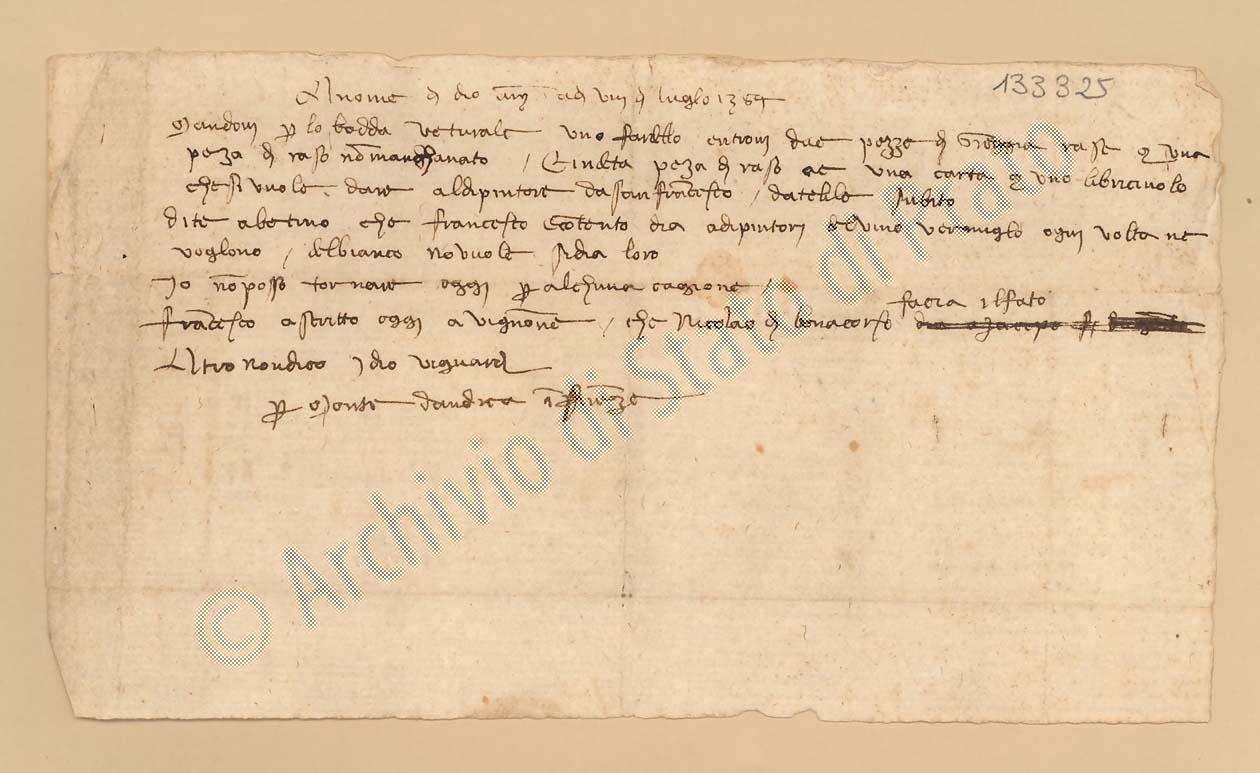 133325
Al nome di dio amen adi viii di luglo 1384
Mandovi per lo bodda veturale uno fardello entrovi due pezze di rase e una
peza di raso non manghanato / E in deta peza di raso ae una carta e uno libricivolo
che si vuole dare al dipintore da san francesco / datelle subito
dite a betino che francesco è contento dia a dipintori del vino vermiglo ogni volta ne
voglono / del bianco no vuole si dia loro
Io non posso tornare oggi per alchuna cagione
facia il fato
francesco a scritto oggi a vignone / che Nicolao di bonacorso
Altro non dico Idio vi guardi
per Monte d'andrea in firenze
© Archivio di Stato di Prato